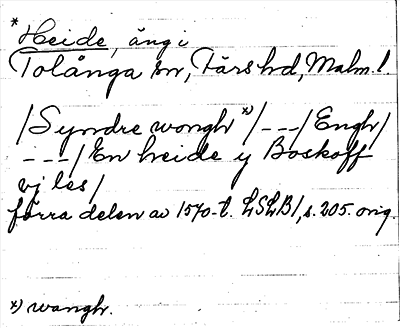 * Heide, äng i
Tolånga sn, Färs hd, Malm. l.
/Syndre wongh *)/ _ _ _/ Engh/
_ _ _/ En heide y Boskoff
vj les/
förra delen av 1570-t. LSLB1, s. 205. orig.
*) wangh.